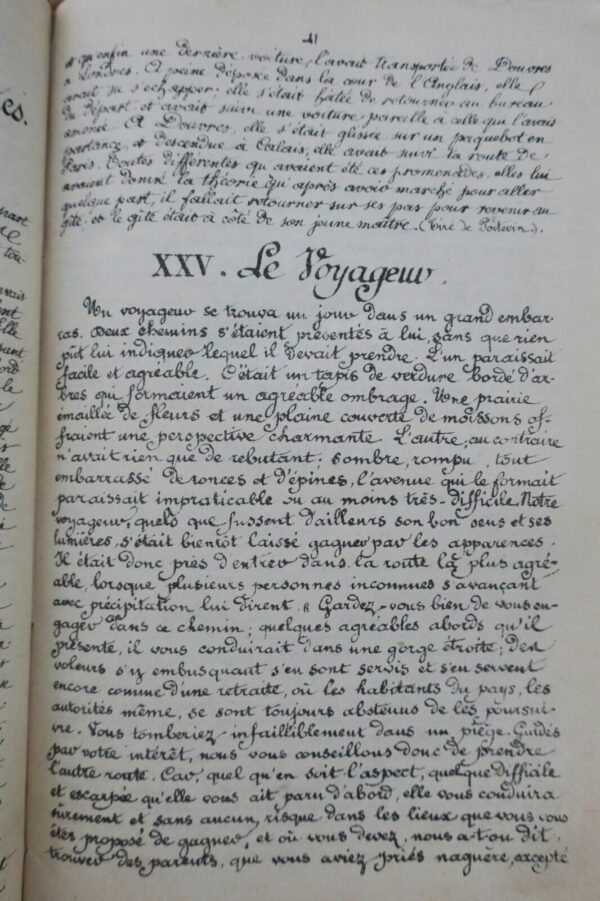 41
et qu'enfin une dernière voiture, l'avait transportée de Douvres
à Londres. A peine déposée dans la cour de l'Anglais, elle
avait su s'échapper; elle s'était hâtée de retourner au bureau
de départ et avait suivi une voiture pareille à celle qui l'avait
amenée. A Douvres, elle s'était glissée sur un paquebot en
partance, et descendue à Calais, elle avait suivi la route de
Paris. Toutes différentes qu'avaient été ces promenades, elles lui
avaient donné la théorie qu'après avoir marché pour aller
quelque part, il fallait retourner sur ses pas pour revenir au
gîte et le gîte était à côté de son jeune maître. (Tiré de Poitevin).
XXV. Le Voyageur.
Un voyageur se trouva un jour dans un grand embar-
ras. Deux chemins s'étaient présentés à lui, sans que rien
pût lui indiquer lequel il devait prendre. L'un paraissait
facile et agréable. C'était un tapis de verdure bordé d'ar-
bres qui formaient un agréable ombrage. Une prairie
émaillée de fleurs et une plaine couverte de moissons of-
fraient une perspective charmante. L'autre, au contraire
n'avait rien que de rebutant. Sombre, rompu, tout
embarrassé de ronces et d'épines, l'avenue qui le formait
paraissait impraticable ou au moins très-difficile. Notre
voyageur, quels que fussent d'ailleurs son bon sens et ses
lumières, s'était bientôt laissé gagner par les apparences.
Il était donc près d'entrer dans la route la plus agré-
able, lorsque plusieurs personnes inconnues s'avançant
avec précipitation lui dirent. « Gardez-vous bien de vous en-
gager dans ce chemin; quelques agréables abords qu'il
présente, il vous conduirait dans une gorge étroite; Des
voleurs s'y embusquant s'en sont servis et s'en servent
encore comme d'une retraite, où les habitants du pays, les
autorités même, se sont toujours abstenus de les poursui-
vre. Vous tomberiez infailliblement dans un piège. Guidés
par votre intérêt, nous vous conseillons donc de prendre
l'autre route. Car, quel qu'en soit l'aspect, quelque difficile
et escarpée qu'elle vous ait paru d'abord, elle vous conduira
sûrement et sans aucun risque dans les lieux que vous vous
êtes proposé de gagner, et où vous devez, nous a-t-on dit,
trouver des parents, que vous aviez priés naguère, excepté